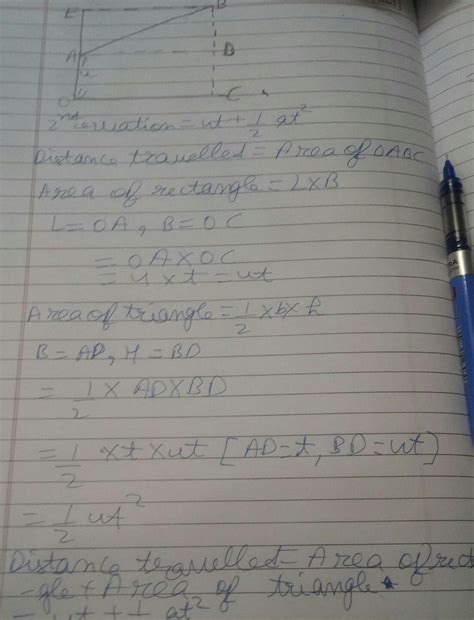 E B
A D
O C
2nd equation = ut + 1/2 at²
Distance travelled = Area of OABC
Area of rectangle = L×B
L = OA, B = OC
= OA × OC
= u × t = ut
Area of triangle = 1/2 × b × h
B = AD, H = BD
= 1/2 × AD×BD
= 1/2 × t × ut [AD=t, BD=ut)
= 1/2 ut²
Distance travelled = Area of rect
-gle + Area of triangle
= ut + 1/2 at²